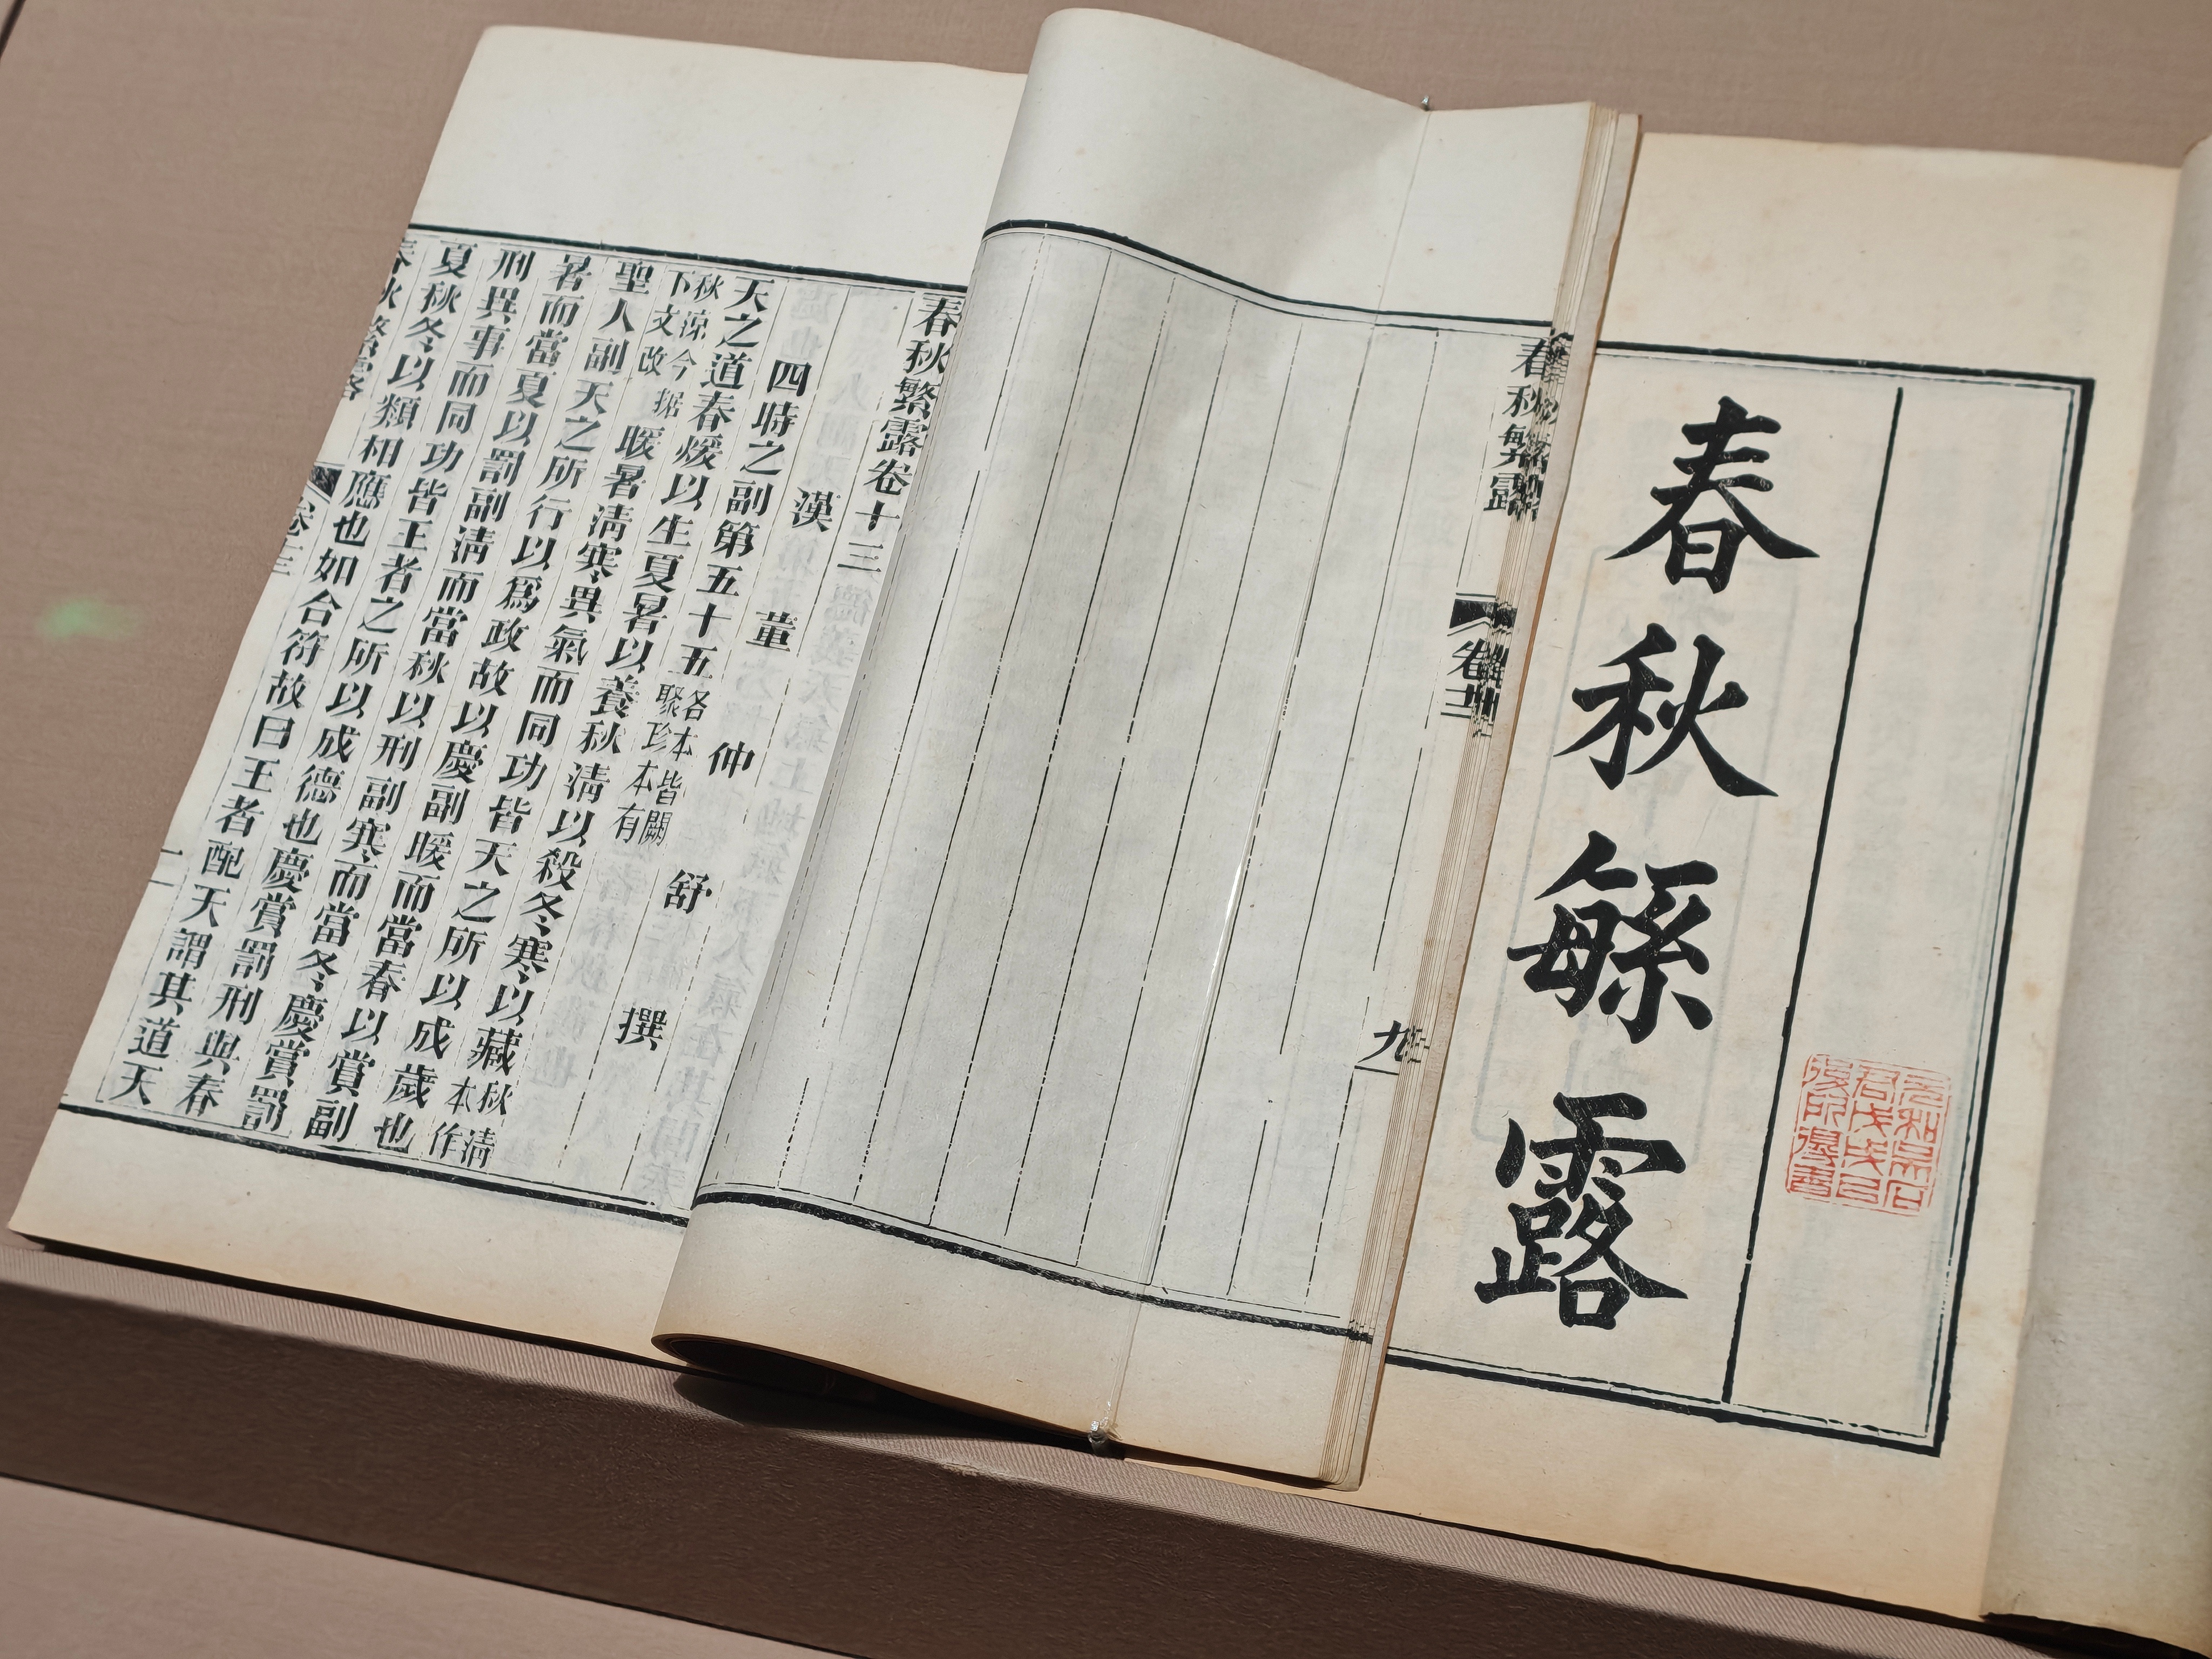 春秋緐露
春秋繁露
卷十二
九
春秋繁露卷十三
漢 董 仲 舒 撰
四時之副第五十五各本皆闕聚珍本有
天之道春煖以生夏暑以養秋清以殺冬寒以藏秋清本作
秋涼今据下文改暖暑清寒異氣而同功皆天之所以成歲也
聖人副天之所行以爲政故以慶副暖而當春以賞副
暑而當夏以罰副清而當秋以刑副寒而當冬慶賞罰
刑異事而同功皆王者之所以成德也慶賞罰刑與春
夏秋冬以類相應也如合符故曰王者配天謂其道天
春秋繁露
卷十三
一